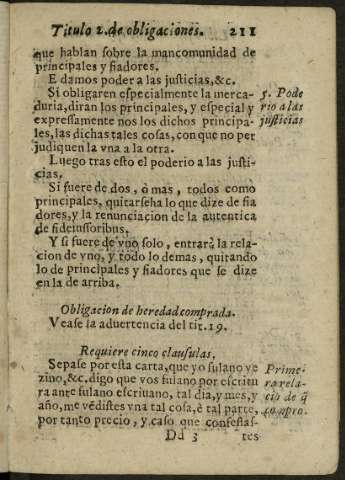 Titulo 2. de obligaciones. 211
que hablan sobre la mancomunidad de
principales y fiadores.
E damos poder a las justicias, &c.
Si obligaren especialmente la merca-
duria, diran los principales, y especial y
expressamente nos los dichos principa-
les, las dichas tales cosas, con que no per
judiquen la vna a la otra.
Luego tras esto el poderio a las justi-
cias.
Si fuere de dos, ò mas, todos como
principales, quitarseha lo que dize de fia
dores, y la renunciacion de la autentica
de fideiussoribus.
Y si fuere de vno solo, entrarà la rela-
cion de vno, y todo lo demas, quitando
lo de principales y fiadores que se dize
en la de arriba.
5. Pode
rio a las
justicias
Obligacion de heredad comprada.
Vease la aduertencia del tit. 19.
Requiere cinco clausulas,
Sepase por esta carta, que yo fulano ve
zino, &c. digo que vos fulano por escritu
ra ante fulano escriuano, tal dia, y mes, y
año, me vẽdistes vna tal cosa, è tal parte,
por tanto precio, y caso que confessas-
Prime-
ra rela-
ciõ de q̃
compro.
Dd 3 tes